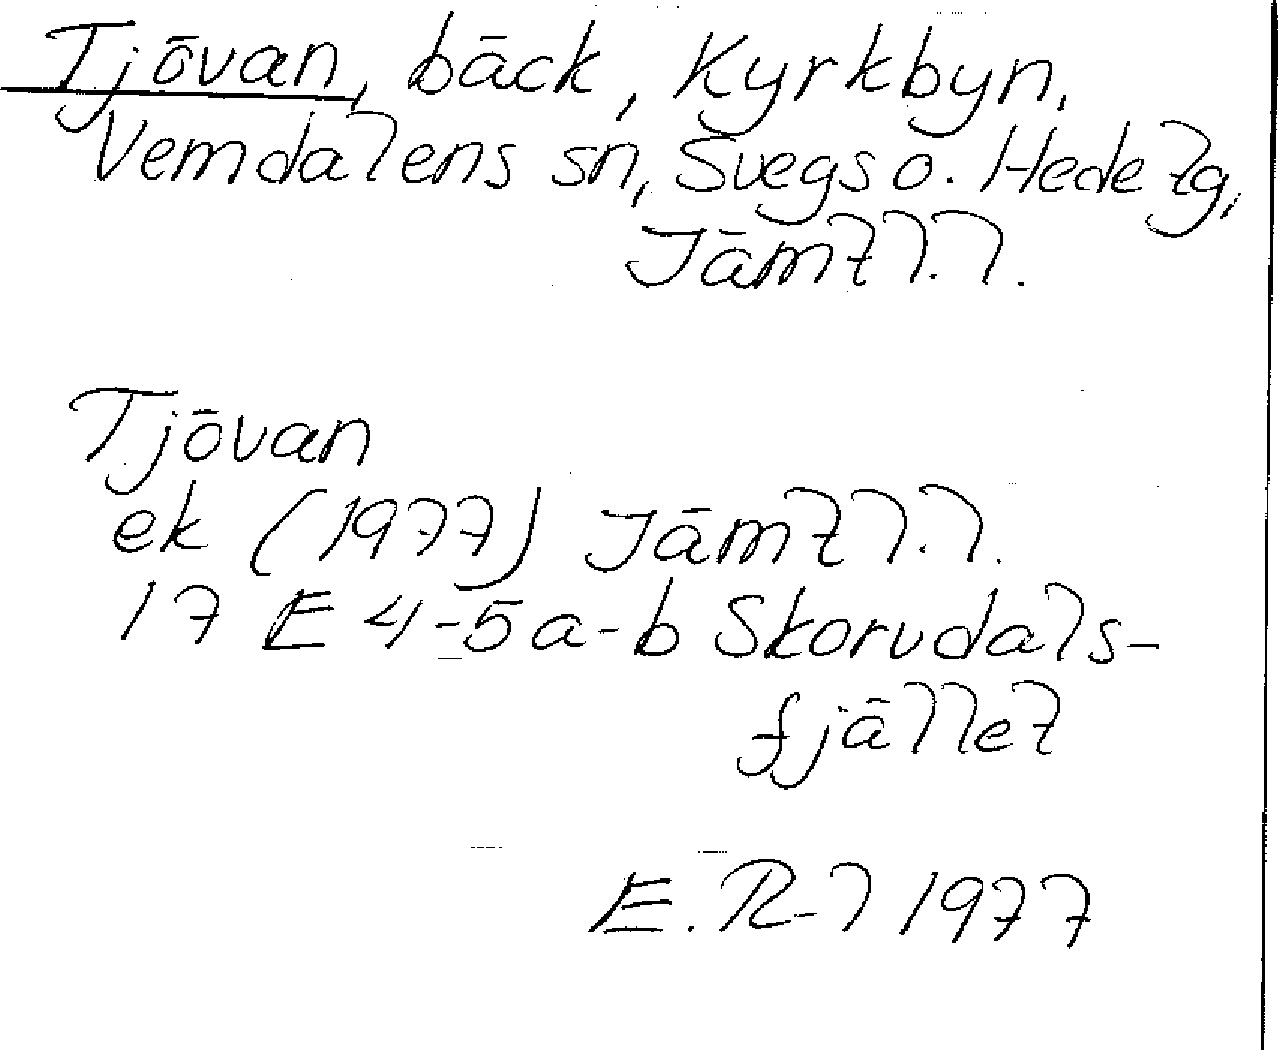 Tjövan, bäck, Kyrkbyn,
Vemdalens sn, Svegs o. Hede tg,
Jämtl.l.
Tjövan
ek (1977) Jämtl.l.
17 E 4-5 a-b Skorvdals-
fjället
E. R-l 1977